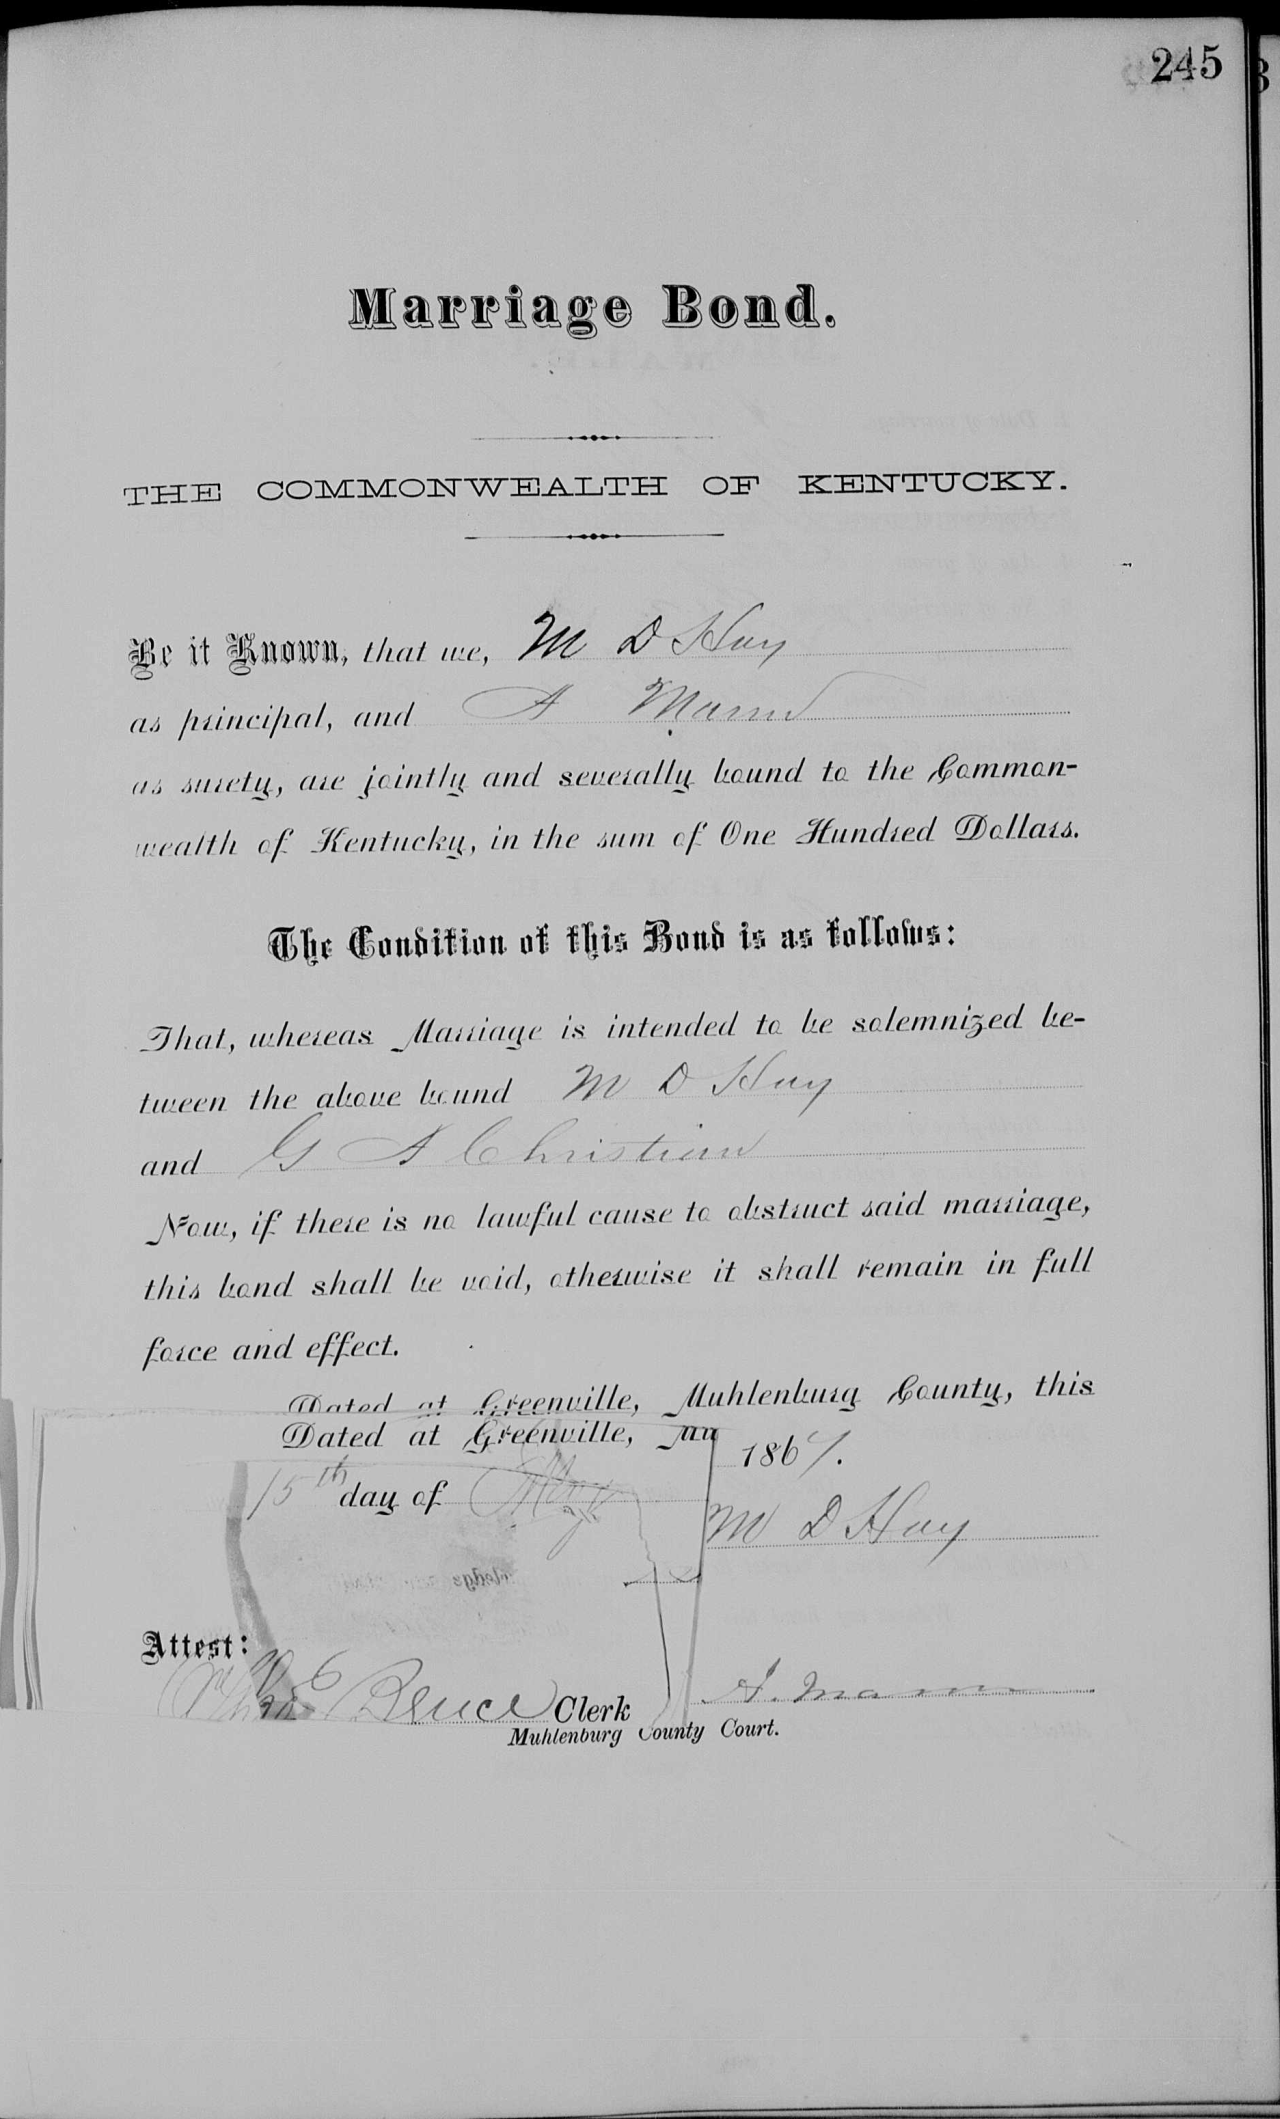 245
Marriage Bond.
THE COMMONWEALTH OF KENTUCKY.
Be it Known, that we, M D Hay
as principal, and A Mann
as surety, are jointly and severally bound to the Common-
wealth of Kentucky, in the sum of One Hundred Dollars.
The Condition of this Bond is as follows:
That, whereas Marriage is intended to be solemnized be-
tween the above bound M D Hay
and G A Christian
Now, if there is no lawful cause to obstruct said marriage,
this bond shall be void, otherwise it shall remain in full
force and effect.
Dated at Greenville, Muhlenburg County, this
Dated at Greenville,
15th day of May 1867.
M D Hay
Attest:
Bruce Clerk A. Mann
Muhlenburg County Court.